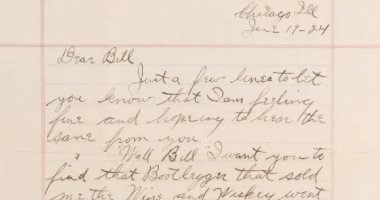 Chicago Ill
June 19-24
Dear Bill
Just a few lines to let
you know that I am feeling
fine and hopeing to hear the
same from you.
"Well Bill" I want you to
find that Bootlegger that sold
me the Wine and Wiskey went